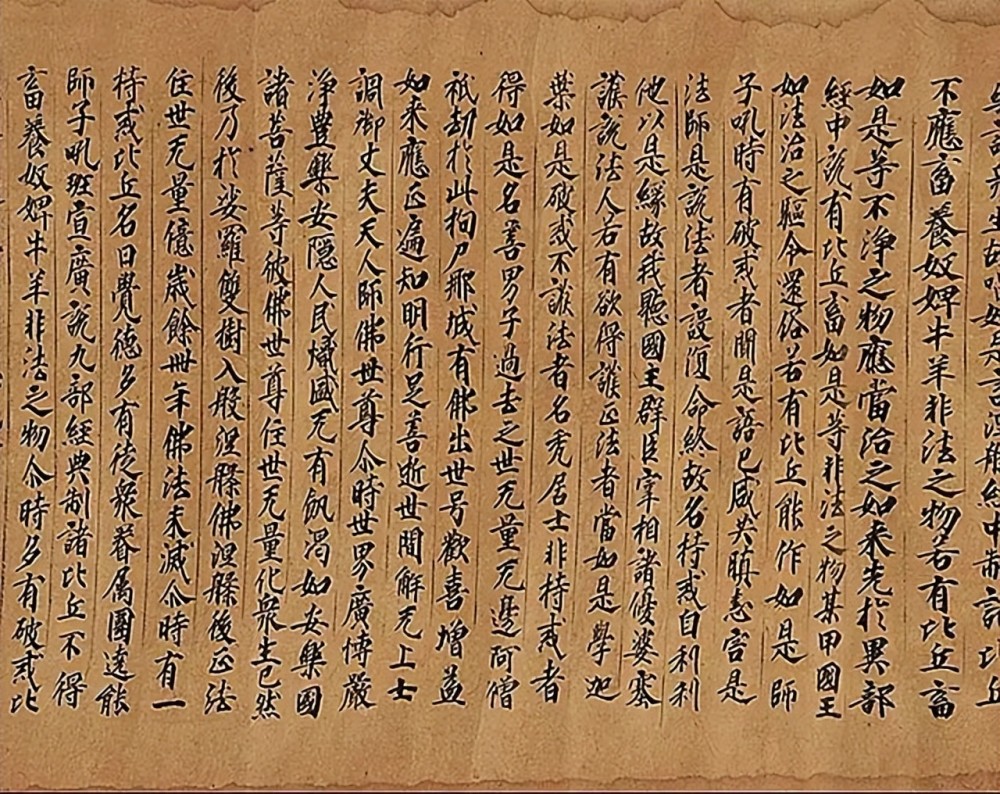 如是言涅槃經中制諸比丘
不應畜養奴婢牛羊非法之物若有比丘畜
如是等不淨之物應當治之如來先於異部
經中說有比丘畜如是等非法之物某甲國王
如法治之驅令還俗若有比丘能作如是師
子吼時有破戒者聞是語已咸共瞋恚害是
法師是說法者設復命終故名持戒自利利
他以是緣故我聽國王群臣宰相諸優婆塞
護說法人若有欲得護正法者當如是學迦
葉如是破戒不護法者名禿居士非持戒者
得如是名善男子過去之世无量无邊阿僧
祇劫於此拘尸那城有佛出世号歡喜增益
如來應正遍知明行足善逝世間解无上士
調御丈夫天人師佛世尊尒時世界廣博嚴
淨豐樂安隱人民熾盛无有飢渴如安樂國
諸菩薩等彼佛世尊住世无量化衆生已然
後乃於娑羅雙樹入般涅槃佛涅槃後正法
住世无量億歲餘卌年佛法未滅尒時有一
持戒比丘名曰覺德多有徒衆眷属圍遶能
師子吼班宣廣說九部經典制諸比丘不得
畜養奴婢牛羊非法之物尒時多有破戒比